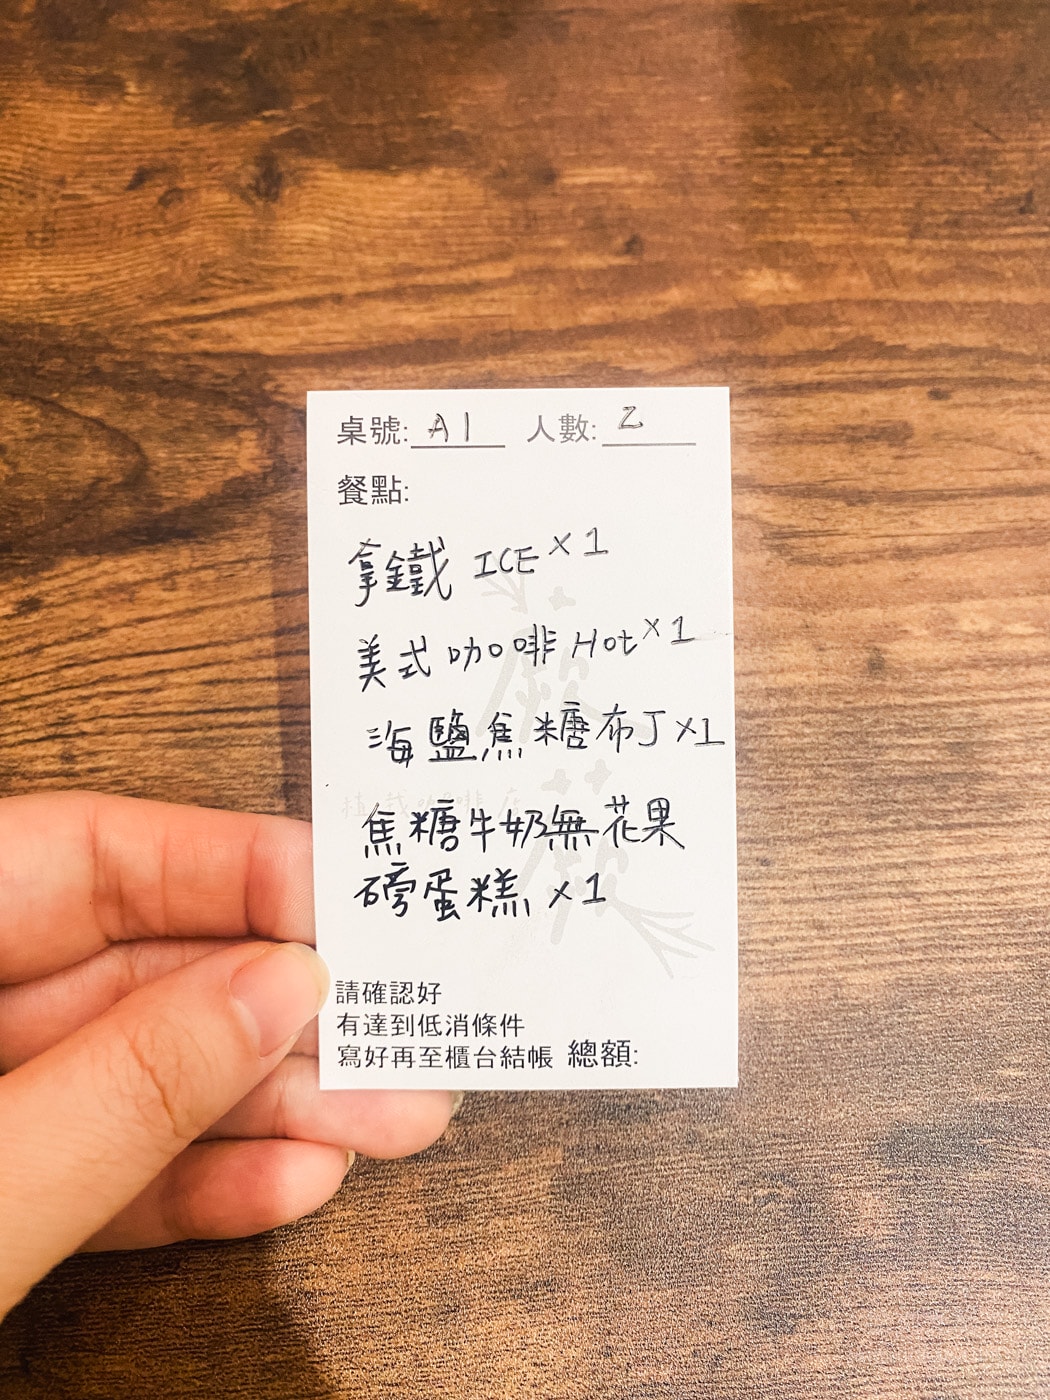 桌號: A1 人數: 2
餐點:
拿鐵 ICE x1
美式咖啡 Hot x1
海鹽焦糖布丁 x1
焦糖牛奶無花果
磅蛋糕 x1
植栽咖啡店
請確認好
有達到低消條件
寫好再至櫃台結帳 總額: